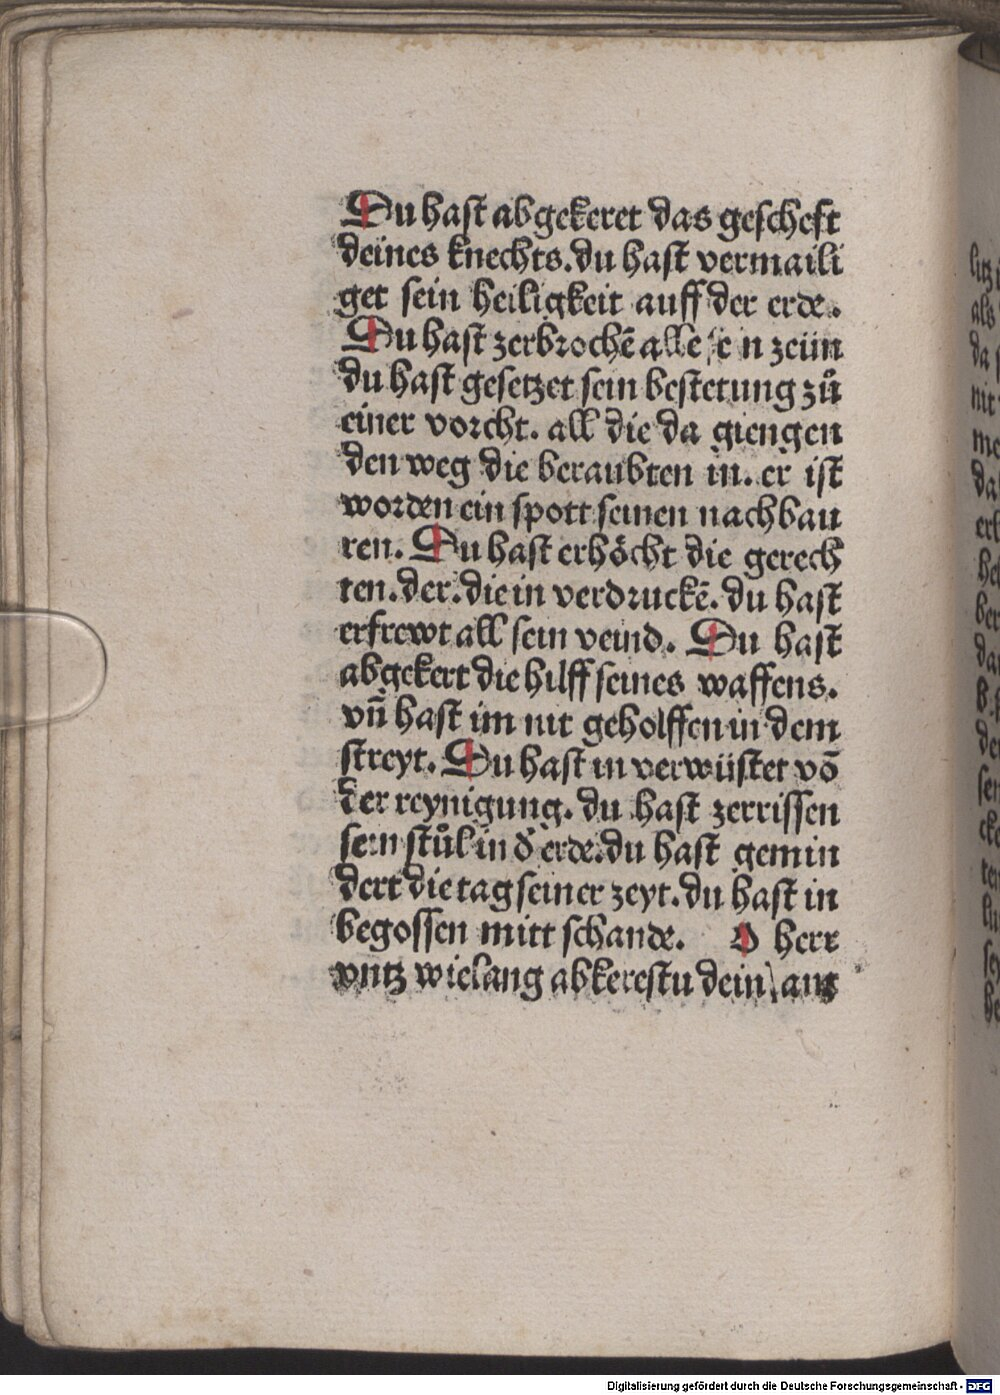 Du hast abgekeret das gescheft
deines knechts. du hast vermaili
get sein heiligkeit auff der erde.
Du hast zerbrochē alle se n zeün
du hast gesetzet sein bestetung zů
einer vorcht. all die da giengen
den weg die beraubten in. er ist
worden ein spott seinen nachbau
ren. Du hast erhöcht die gerech
ten. der. die in verdruckē. du hast
erfrewt all sein veind. Du hast
abgekert die hilff seines waffens.
vn̄ hast im nit geholffen in dem
streyt. Du hast in verwüstet vō
der reynigung. du hast zerrissen
sein stůl in d' erde. du hast gemin
dert die tag seiner zeyt. du hast in
begossen mitt schande. O herr
vntz wielang abkerestu dein ant
Digitalisierung gefördert durch die Deutsche Forschungsgemeinschaft - DFG